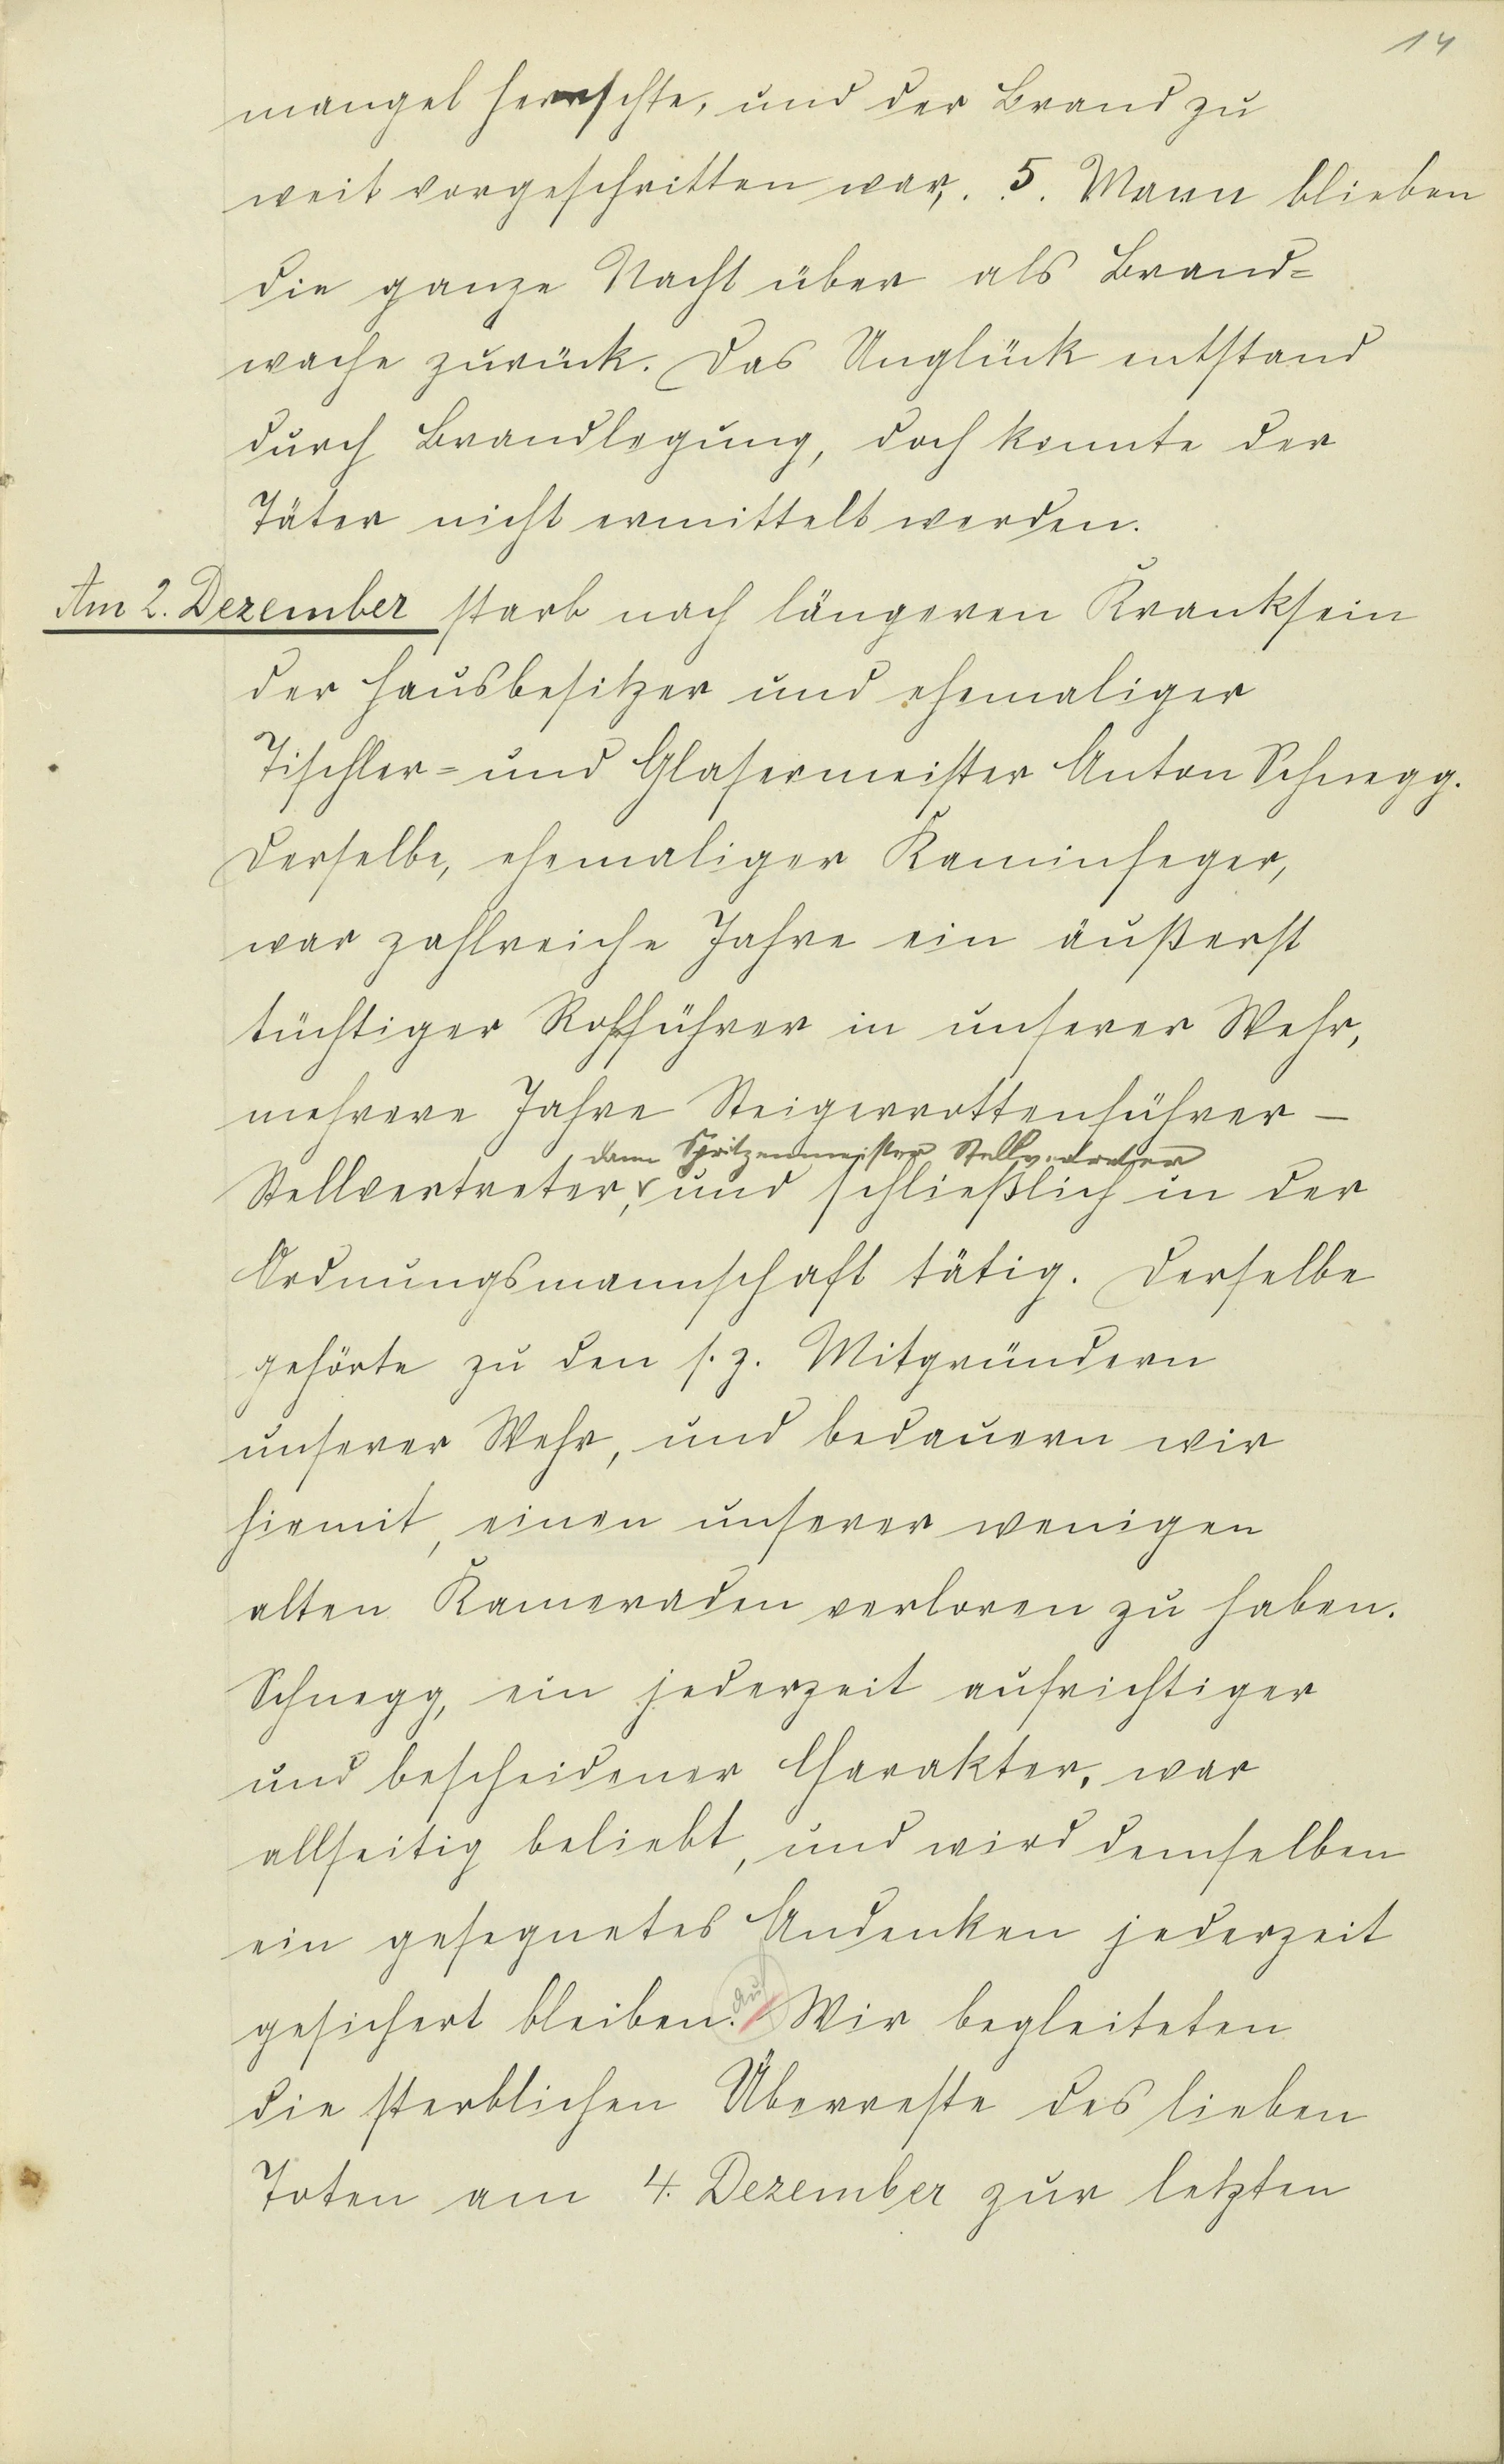 14
mangel herrschte, und der Brand zu
weit vorgeschritten war. 5. Mann blieben
die ganze Nacht über als Brand=
wache zurück. Das Unglück entstand
durch Brandlegung, doch konnte der
Täter nicht ermittelt werden.
Am 2. Dezember starb nach längeren Kranksein
der Hausbesitzer und ehemaliger
Tischler= und Glasermeister Anton Schnegg.
Derselbe, ehemaliger Kaminfeger,
war zahlreiche Jahre ein äußerst
tüchtiger Rohrführer in unserer Wehr,
mehrere Jahre Steigerrottenführer –
dann Spritzenmeister Stellvertreter
Stellvertreter, und schließlich in der
Ordnungsmannschaft tätig. Derselbe
gehörte zu den s. z. Mitgründern
unserer Wehr, und bedauern wir
hiemit, einen unserer wenigen
alten Kameraden verloren zu haben.
Schnegg, ein jederzeit aufrichtiger
und bescheidener Charakter, war
allseitig beliebt, und wird demselben
ein gesegnetes Andenken jederzeit
gesichert bleiben. Wir begleiteten
die sterblichen Überreste des lieben
Toten am 4. Dezember zur letzten